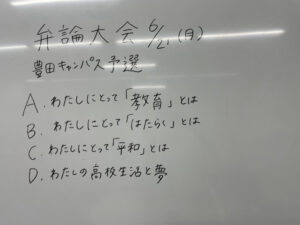 弁論大会 6/21(月)
豊田キャンパス予選
A. わたしにとって「教育」とは
B. わたしにとって「はたらく」とは
C. わたしにとって「平和」とは
D. わたしの高校生活と夢